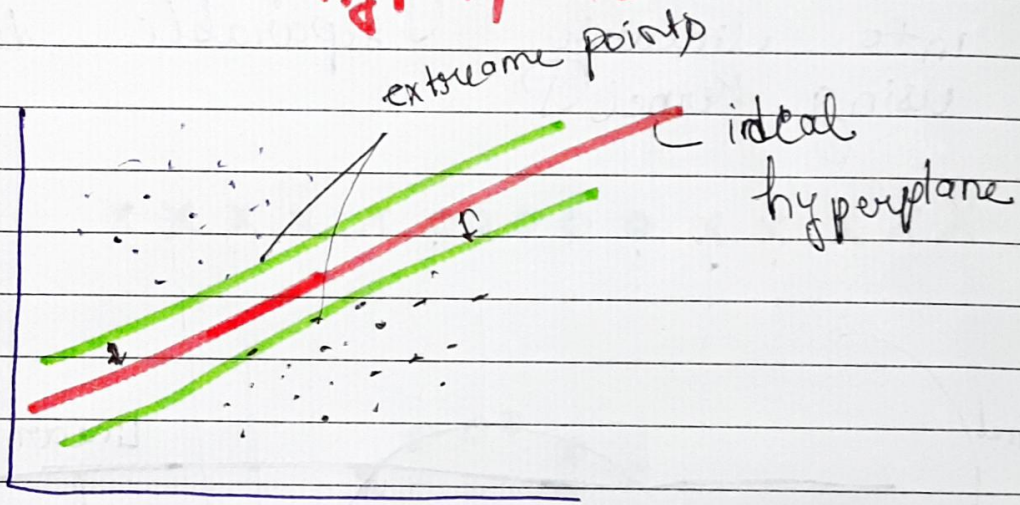 extreame points
ideal
hyperplane